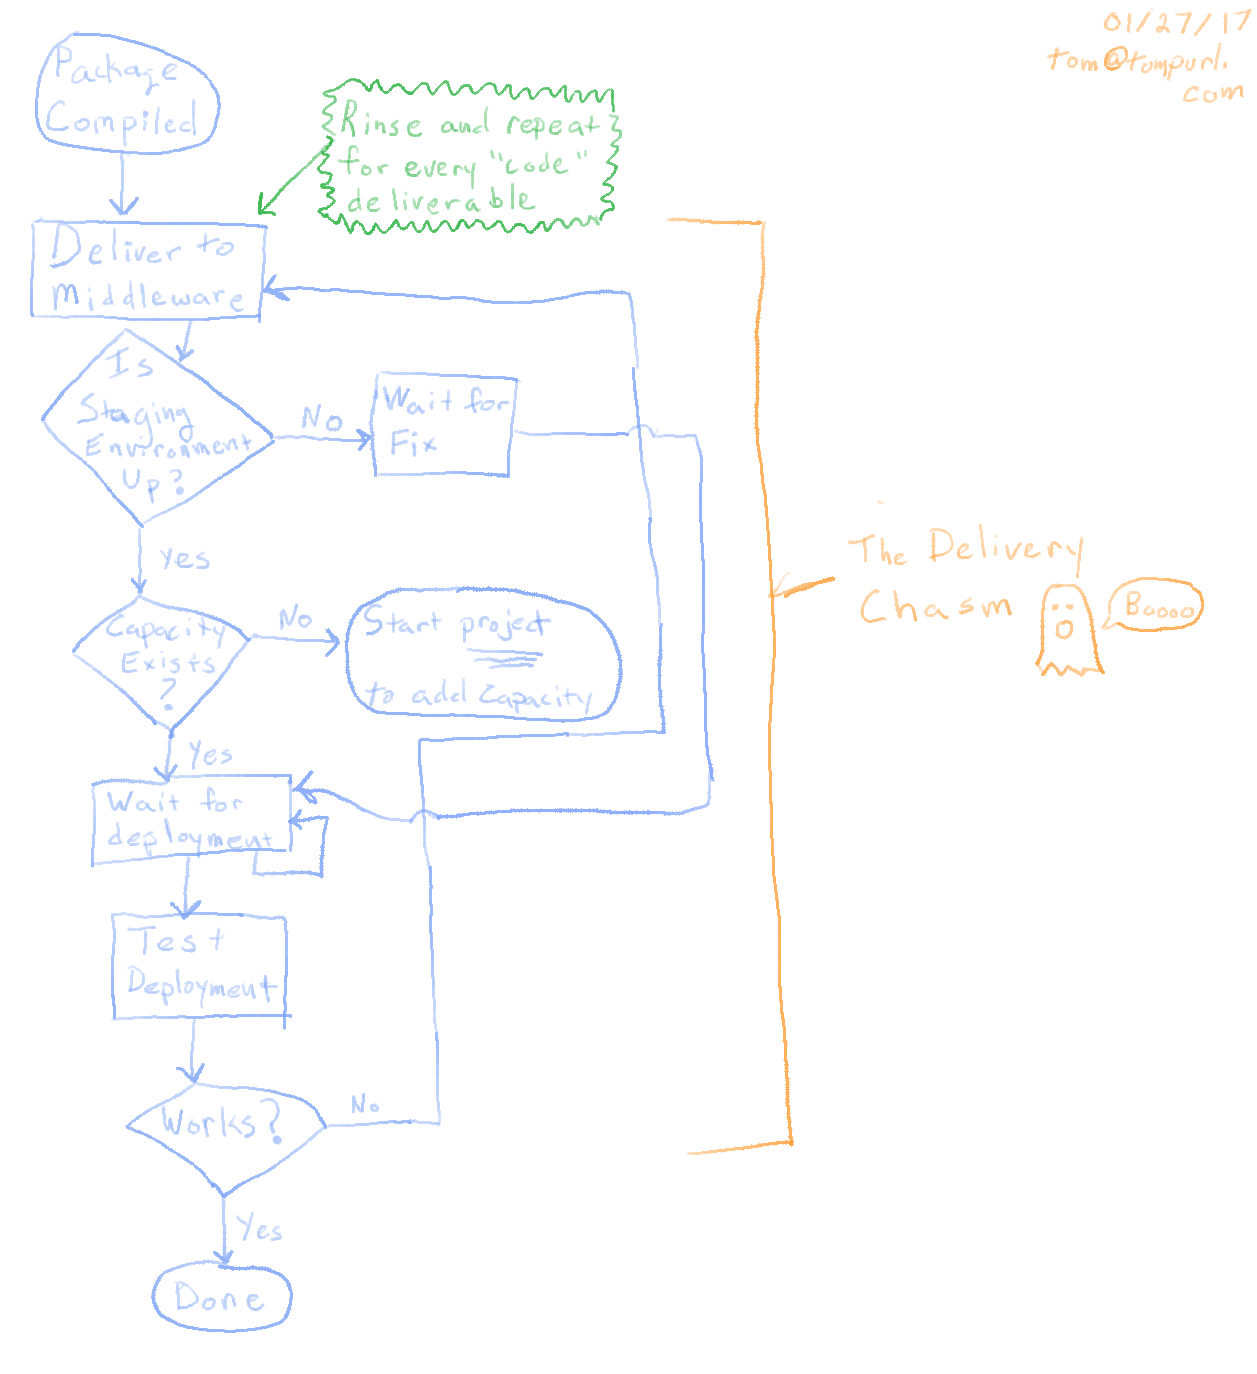 01/27/17
tom@tompurl.
com
Package
Compiled
Rinse and repeat
for every "code"
deliverable
Deliver to
Middleware
Is
Staging
Environment
Up?
No
Wait for
Fix
Yes
Capacity
Exists
?
No
Start project
to add Capacity
Yes
Wait for
deployment
Test
Deployment
Works?
No
Yes
Done
The Delivery
Chasm
Boooo